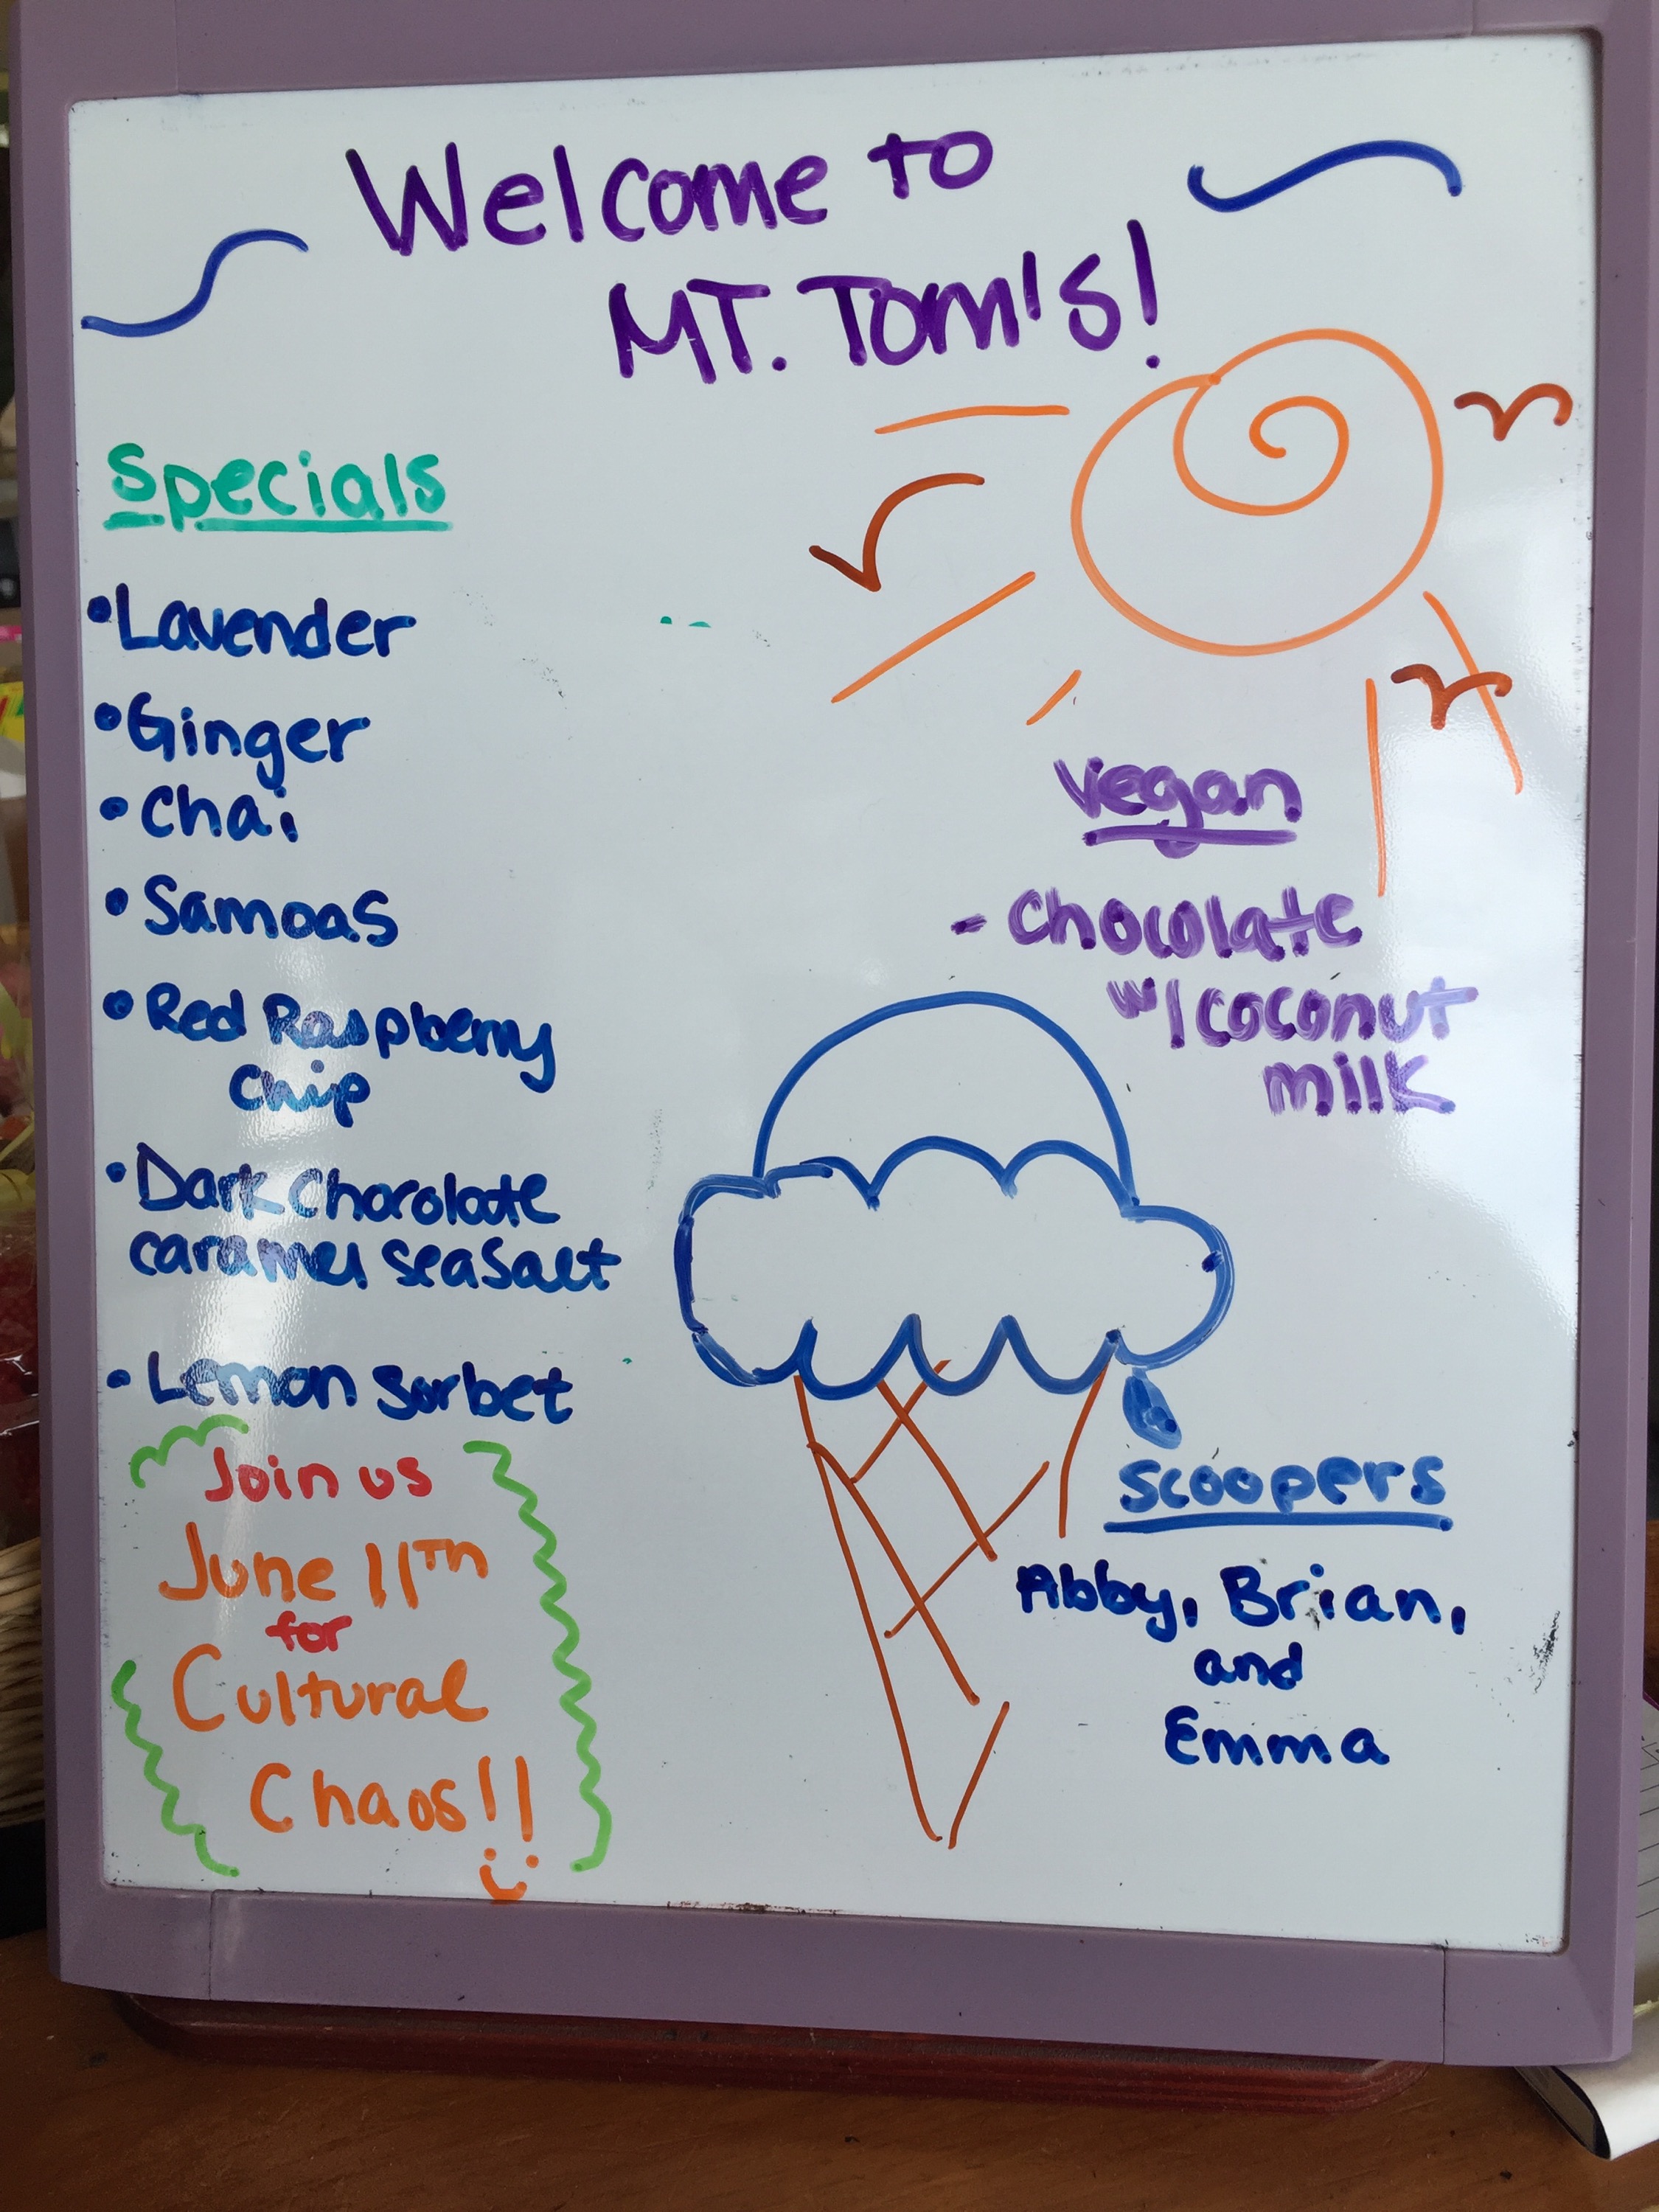 Welcome to
MT. Tom's!
Specials
• Lavender
• Ginger
• Chai
• Samoas
• Red Raspberry
Chip
• Dark Chocolate
caramel seasalt
• Lemon sorbet
Join us
June 11th
for
Cultural
Chaos!!
vegan
- Chocolate
w/ coconut
milk
scoopers
Abby, Brian,
and
Emma